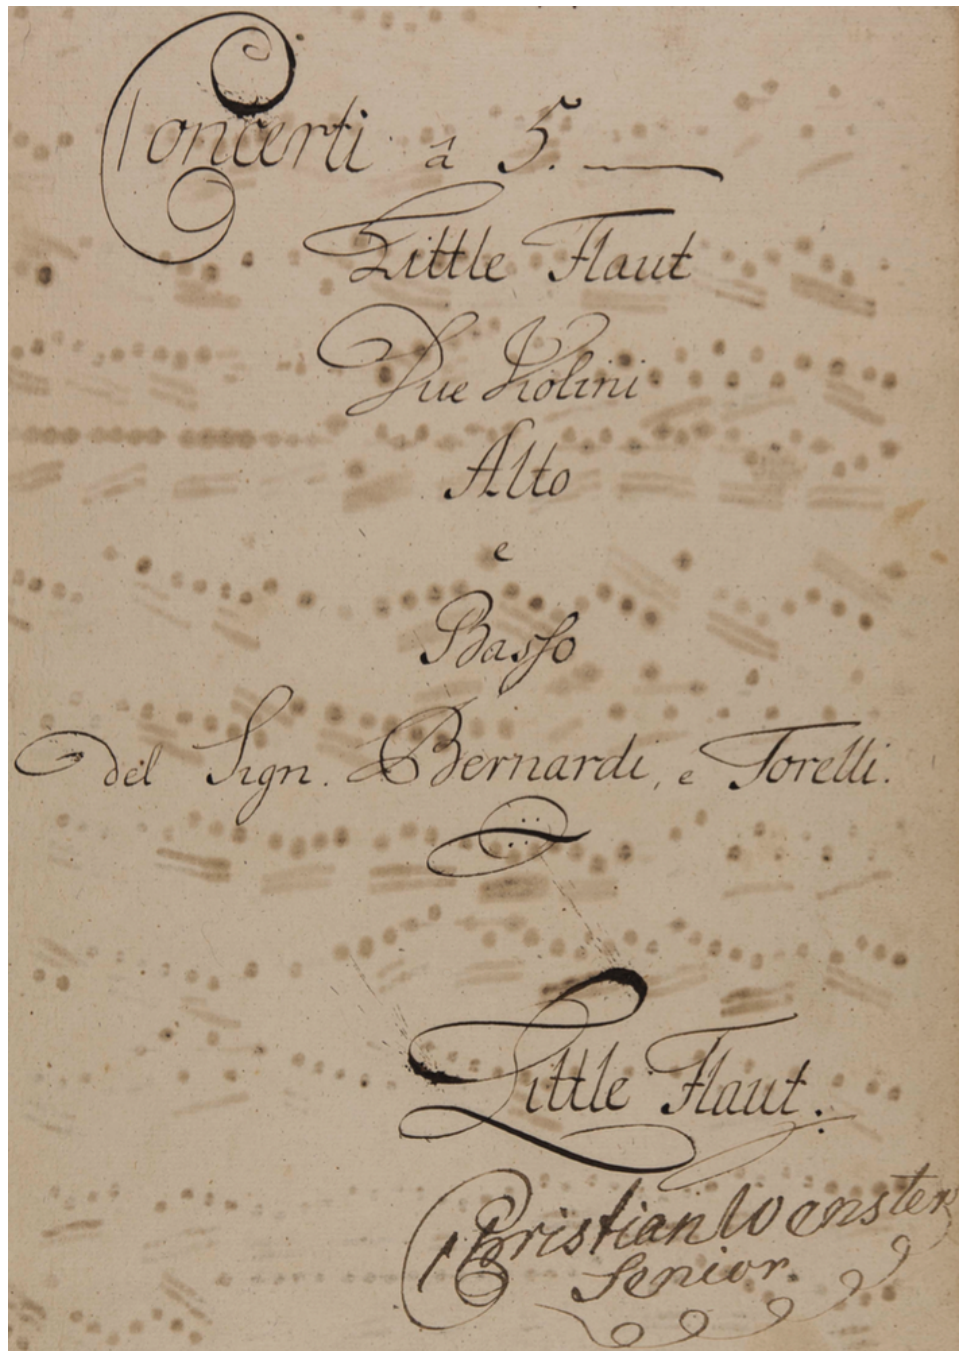 Concerti â 5.
Little Flaut
Due Violini
Alto
e
Basso
del Sign. Bernardi, e Torelli.
Little Flaut.
Christian Wenster
Senior.